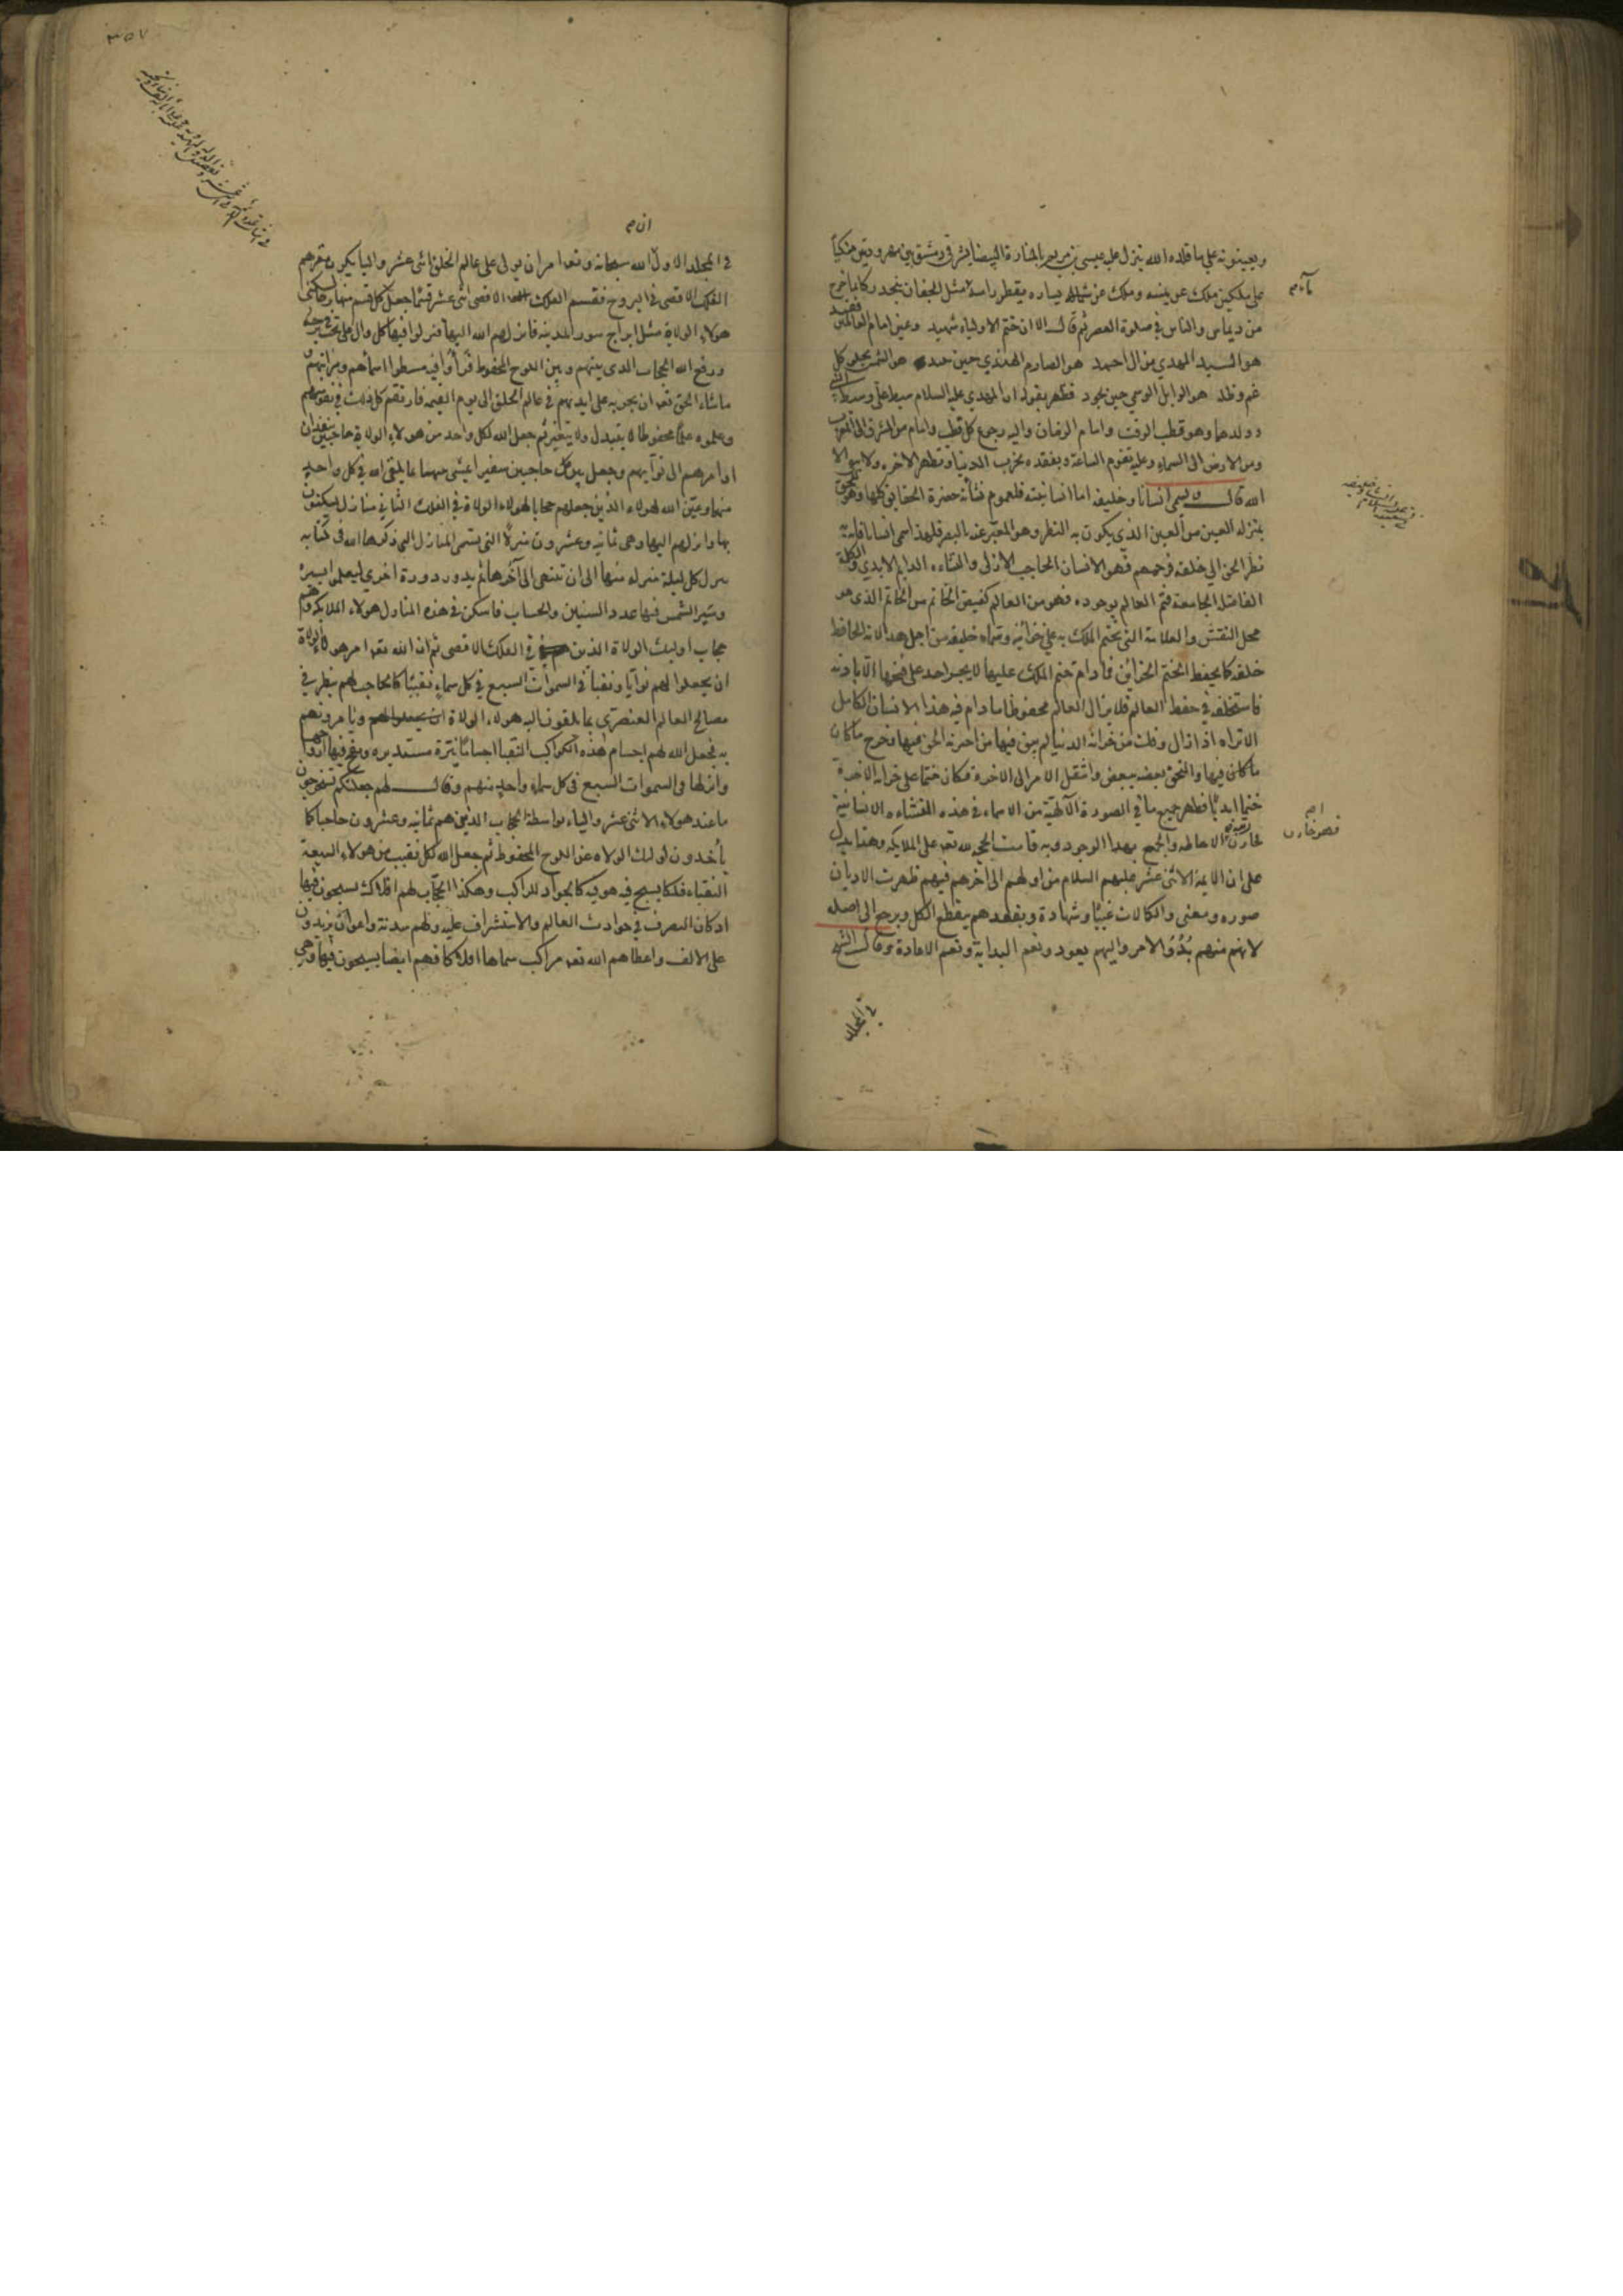 ويعينونه على ما قلده الله ينزل عليه عيسى بن مريم بالمنارة البيضا بشرقى دمشق بين مهرودتين متكيا
على ملكين ملك عن يمينه وملك عن يساره يقطر راسه مثل الجفان يتحدر كانما خرج
من ديماس والناس في صلوة العصر ثم قال الا ان ختم الاولياء شهيد وعين امام العالمين فقيد
هو السيد المهدي من ال احمد هو الصارم الهندي حين هو الشمس يجلو كل
غم وظلمة هو الوابل الوسمي حين يجود فظهر بقوله ان المهدي عليه السلام
وولدهما وهو قطب الوقت وامام الزمان واليه رجوع كل قطب وامام من المشرق الى المغرب
ومن الارض الى السماء وعليه تقوم الساعة وبفقده تخرب الدنيا وتظهر الاخره ولا الا
الله قال يسمى انسانا وخليفه اما انسانيته فلعموم نشأته حضرة الحقايق كلها وهو للحق
بمنزله العين من العين الذي يكون به النظر وهو المعبر عنه بالبصر فلهذا سمى انسانا فانه به
نظر الحق الى خلقه فرحمهم فهو الانسان الحادث الازلى والنشاءه الدايم الابدي والكلمة
الفاصلة الجامعة فتم العالم بوجوده فهو من العالم كفص الخاتم من الخاتم الذى هو
محل النقش والعلامة التى يختم الملك به على خزانته وسماه خليفه من اجل هذا لانه الحافظ
خلقه كما يحفظ الختم الخزاين فمادام ختم الملك عليها لا يجسر احد على فتحها الا باذنه
فاستخلفه في حفظ العالم فلا يزال العالم محفوظا ما دام فيه هذا الانسان الكامل
الا تراه اذا زال وفك من خزانة الدنيا لم يبق فيها من اختزنه الحق فيها فخرج ما كان
ما كان فيها والتحق بعضه ببعض وانتقل الامر الى الاخرة فكان ختما على خزانه الاخرة
ختما ابديا فظهر جميع ما في الصورة الالهية من الاسماء في هذه النشاءه الانسانية
فحازت رتبه الاحاطه والجمع بهذا الوجود وبه قامت الحجه لله تعه على الملايكه وهذا يدل
على ان الايمة الاثنى عشر عليهم السلام من اولهم الى اخرهم فيهم ظهرت الاديان
صوره ومعنى والكمالات غيبا وشهادة وبفقدهم ينقطع الكل ويرجع الى اصله
لانهم منهم بدؤ الامر واليهم يعود ونعم البداية ونعم الاعادة وقال الشيخ
في المجلد
في المجلد الاول الله سبحانه وتعه امر ان يولى على عالم الخلق اثنى عشر واليا يكون مقرهم
الفلك الاقصى في البروج فقسم الفلك الاقصى اثنى عشر قسما جعل كل قسم منها برجا لسكنى
هولاء الولاة مثل ابراج سور المدينه فانزلهم الله اليها فنزلوا فيها كل وال على تخت في برجه
ورفع الله الحجاب الذى بينهم وبين اللوح المحفوظ فرأوا فيه مسطرا اسمآهم ومراتبهم
ماشاء الحق تعه ان يجريه على ايديهم في عالم الخلق الى يوم القيمه فارتقم كل ذلك في نفوسهم
وعلموه علما محفوظا لا يتبدل ولا يتغير ثم جعل الله لكل واحد من هولاء الولاة حاجبين ينفذان
اوامرهم الى نوآبهم وجعل بين كل حاجبين سفيرا يمشى بينهما بما يلقى اليه في كل واحد
منهما وعين الله لهولاء الذين جعلهم حجابا لهولاء الولاة في الفلك الثاني منازل يسكنون
بها وانزلهم اليها وهى ثمانيه وعشرون منزلا التى يسمى المنازل التي ذكرها الله في كتابه
ينزل كل ليلة منزله منها الى ان تنتهى الى آخرها ثم يدور دورة اخرى ليعلموا بسيره
وسير الشمس فيها عدد السنين والحساب فاسكن في هذه المنازل هولاء الملايكه وهم
حجاب اوليك الولاة الذين في الفلك الاقصى ثم ان الله تعه امر هولاء الولاة
ان يجعلوا لهم نوآبا ونقبآ في السموات السبع في كل سماء نقيبا كالحاجب لهم ينظر في
مصالح العالم العنصرى بما يلقون اليه هولاء الولاة ويأمرونهم
به فجعل الله لهم اجسام هذه الكواكب النقبا اجساما نيرة مستديره ونفخ فيها ارواحهم
وانزلها في السموات السبع في كل سماء واحد منهم وقال لهم جعلتكم تستخرجون
ما عند هولاء الاثنى عشر واليا، بواسطة الحجاب الذين هم ثمانيه وعشرون حاجبا كما
يأخذون اوليك الولاه عن اللوح المحفوظ ثم جعل الله لكل نقيب من هولاء السبعة
النقباء فلكا يسبح فيه هو فيه كالجواد للراكب وهكذا الحجاب لهم افلاك يسبحون فيها
اذ كان التصرف في حوادث العالم والاستشراف عليه ولهم سدنة واعوان يزيدون
على الالف واعطاهم الله تعه مراكب سماها افلاكا فهم ايضا يسبحون فيها وهى